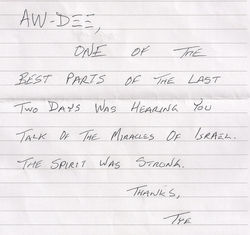 AW-DEE,
ONE OF THE
BEST PARTS OF THE LAST
TWO DAYS WAS HEARING YOU
TALK OF THE MIRACLES OF ISRAEL.
THE SPIRIT WAS STRONG.
THANKS,
TYE